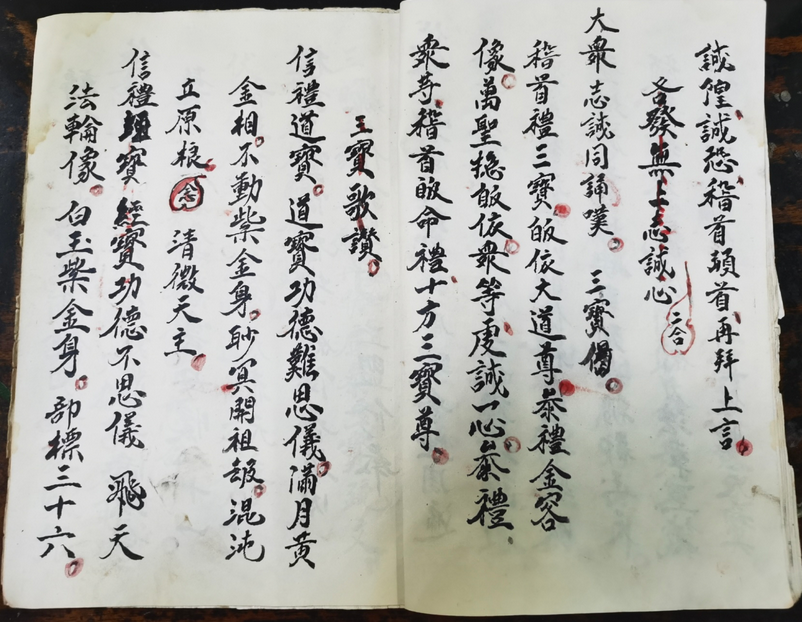 誠惶誠恐稽首頓首再拜上言
各發無上志誠心 二合
大衆志誠同誦嘆 三寶偈
稽首禮三寶皈依大道尊叅禮金容
像萬聖揔皈依衆等虔誠一心叅禮
衆等稽首皈命禮十方三寶尊
三寶歌讚
信禮道寶道寶功德難思儀滿月黃
金相不動紫金身眇冥開祖刼混沌
立原根 念 清微天主
信禮經寶經寶功德不思儀 飛天
法輪像白玉紫金身部標三十六